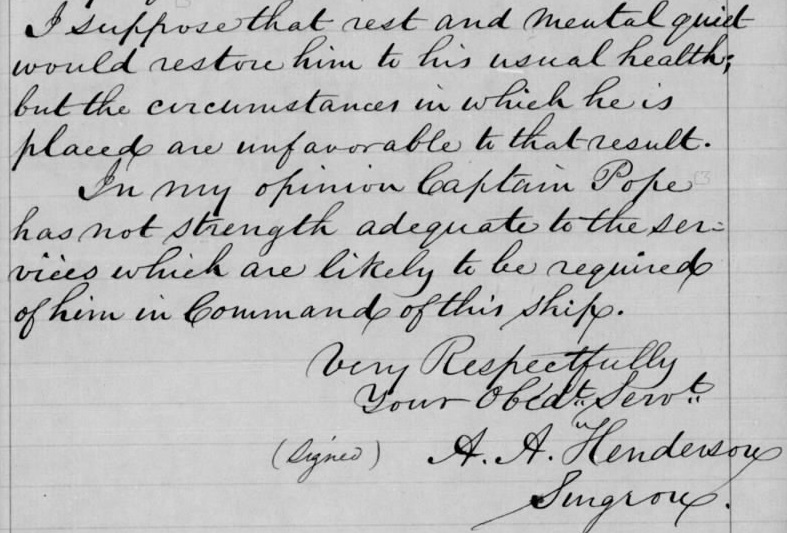 I suppose that rest and mental quiet
would restore him to his usual health;
but the circumstances in which he is
placed are unfavorable to that result.
In my opinion Captain Pope
has not strength adequate to the ser-
vices which are likely to be required
of him in Command of this ship.
Very Respectfully
Your Obedt. Servt.
(Signed) A. A. Henderson
Surgeon.